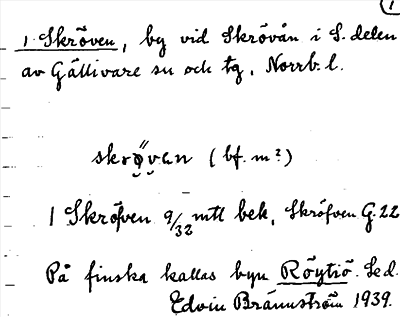 1
1. Skröven, by vid Skrövån i S. delen
av Gällivare sn och tg, Norrb. l.
skrøvan (bf. m?)
1 Skröfven 9/32 mtl bek, Skröfven G. 22
På finska kallas byn Röytiö. Se d.
Edvin Brännström 1939.